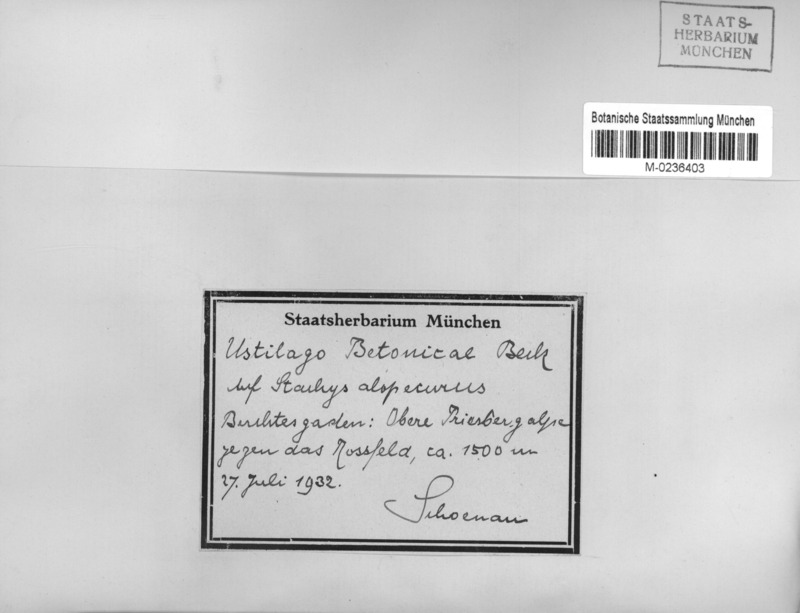 STAATS-
HERBARIUM
MÜNCHEN
Botanische Staatssammlung München
M-0236403
Staatsherbarium München
Ustilago Betonicae Beck
auf Stachys alopecurus
Berchtesgaden: Obere Priesbergalpe
gegen das Rossfeld, ca. 1500 m
27. Juli 1932.
Schoenau